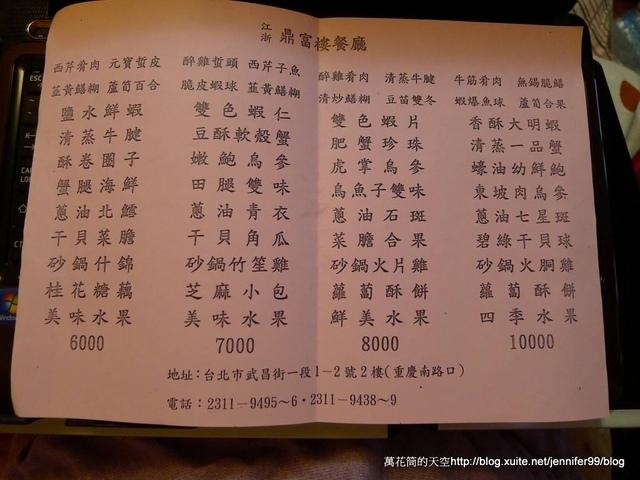 江浙 鼎富樓餐廳
西芹肴肉 元寶蜇皮
韮黃鱔糊 蘆筍百合
鹽水鮮蝦
清蒸牛腱
酥卷圈子
蟹腿海鮮
蔥油北鱈
干貝菜膽
砂鍋什錦
桂花糖藕
美味水果
6000
醉雞蜇頭 西芹子魚
脆皮蝦球 韮黃鱔糊
雙色蝦仁
豆酥軟殼蟹
嫩鮑烏參
田腿雙味
蔥油青衣
干貝角瓜
砂鍋竹笙雞
芝麻小包
美味水果
7000
醉雞肴肉 清蒸牛腱
清炒鱔糊 豆苗雙冬
雙色蝦片
肥蟹珍珠
虎掌烏參
烏魚子雙味
蔥油石斑
菜膽合果
砂鍋火片雞
蘿蔔酥餅
鮮美水果
8000
牛筋肴肉 無錫脆鱔
蝦爆魚球 蘆筍合果
香酥大明蝦
清蒸一品蟹
蠔油幼鮮鮑
東坡肉烏參
蔥油七星斑
碧綠干貝球
砂鍋火胴雞
蘿蔔酥餅
四季水果
10000
地址:台北市武昌街一段1－2號2樓(重慶南路口)
電話:2311－9495～6·2311－9438～9
萬花筒的天空http://blog.xuite.net/jennifer99/blog